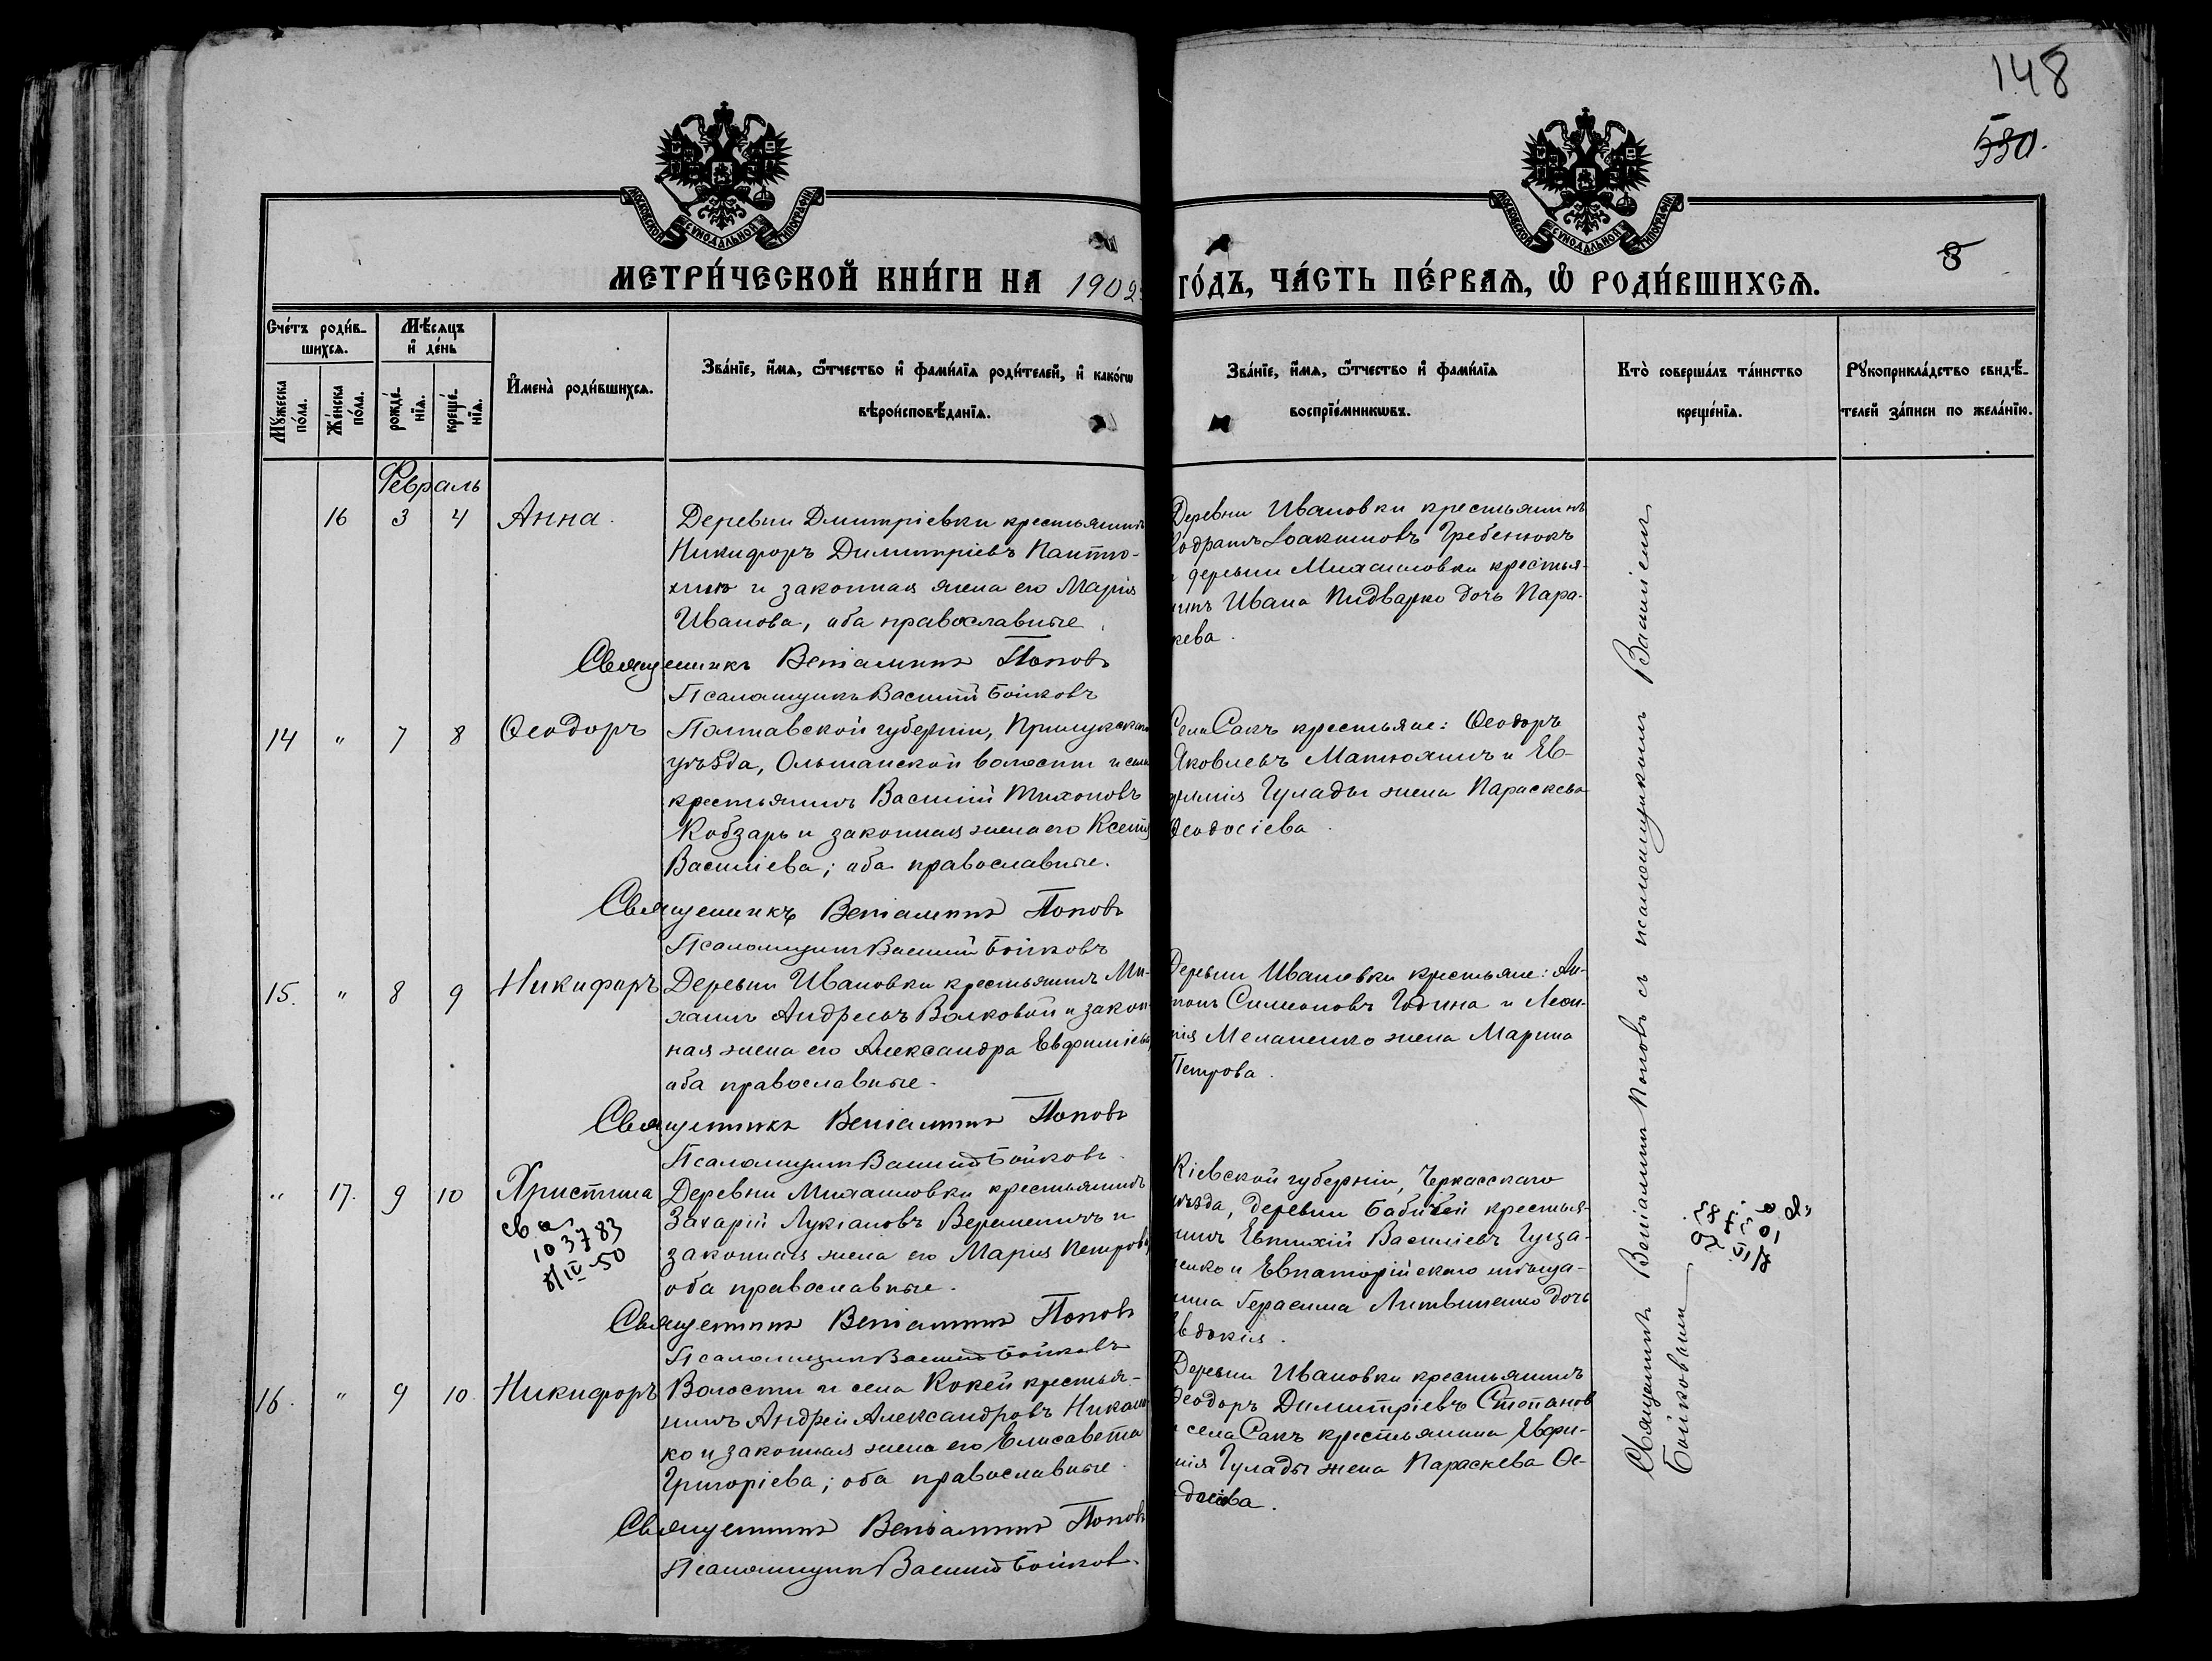 148
530.
8
МОСКОВСКОЙ СѴНОДАЛЬНОЙ ТИПОГРАФІИ
МОСКОВСКОЙ СѴНОДАЛЬНОЙ ТИПОГРАФІИ
МЕТРИ́ЧЕСКОЙ КНИ́ГИ НА 1902
ГО́ДЪ, ЧА́СТЬ ПЕ́РВАѦ, Ѽ РОДИ́ВШИХСѦ.
Сче́тъ роди́в-
шихсѧ.
Мѣ́сѧцъ
и҆ де́нь
Мꙋ́жеска
по́ла.
Же́нска
по́ла.
рожде́-
нїѧ.
креще́-
нїѧ.
И҆мена̀ роди́вшихсѧ.
Зва́нїе, и҆́мѧ, ѻ҆́тчество и҆ фами́лїѧ роди́телей, и҆ како́гѡ
вѣроисповѣ́данїѧ.
Зва́нїе, и҆́мѧ, ѻ҆́тчество и҆ фами́лїѧ
воспрїе́мникѡвъ.
Кто̀ соверша́лъ та́инство
креще́нїѧ.
Рꙋкоприкла́дство свидѣ́-
телей за́писи по жела́нїю.
Февраль
16 3 4 Анна.
Деревни Дмитріевки крестьянинъ
Никифоръ Димитріевъ Панто-
и законная жена его Марія
Иванова, оба православные
Священникъ Веніаминъ Поповъ
Псаломщикъ Василій Бойковъ
Деревни Ивановки крестьянинъ
Кодратъ Іоакимовъ Гребенюкъ
и деревни Михаиловки крестья-
нина Ивана Пидварко дочь Пара-
скева.
14 " 7 8 Ѳеодоръ
Полтавской губерніи, Прилукскаго
уѣзда, Ольшанской волости и села
крестьянинъ Василій Тихоновъ
Кобзарь и законная жена его Ксенія
Василіева; оба православные.
Священникъ Веніаминъ Поповъ
Псаломщикъ Василій Бойковъ
Села Сакъ крестьяне: Ѳеодоръ
Яковлевъ Матюхинъ и Ев-
фимія Гулады жена Параскева
Ѳеодосіева.
15. " 8 9 Никифоръ
Деревни Ивановки крестьянинъ Ми-
хаилъ Андреевъ Волковой и закон-
ная жена его Александра Евфиміева,
оба православные.
Священникъ Веніаминъ Поповъ
Псаломщикъ Василій Бойковъ.
Деревни Ивановки крестьяне: Ан-
тонъ Симеоновъ Година и Леон-
тія Меланенко жена Марина
Петрова.
" 17. 9 10 Христина
Деревни Михаиловки крестьянинъ
Захарій Лукіановъ Веремеичъ и
законная жена его Марія Петрова,
оба православные.
св а
103783
8/IV-50
Священникъ Веніаминъ Поповъ
Псаломщикъ Василій Бойковъ
Кіевской губерніи, Черкасскаго
уѣзда, деревни Бабичей крестья-
нинъ Евтихій Василіевъ Гуца-
ленко и Евпаторійскаго мѣща-
нина Герасима Литвиненко дочь
Евдокія.
16. " 9 10. Никифоръ
Волости и села Кокей крестья-
нинъ Андрей Александровъ Никоно-
ко и законная жена его Елисавета
Григоріева; оба православные.
Священникъ Веніаминъ Поповъ
Псаломщикъ Василій Бойковъ.
Деревни Ивановки крестьянинъ
Ѳеодоръ Димитріевъ Степанов
и села Сакъ крестьянина Евфи-
мія Гулады жена Параскева Ѳе-
одосіева.
Священникъ Веніаминъ Поповъ съ псаломщикомъ Василіемъ
Бойковымъ